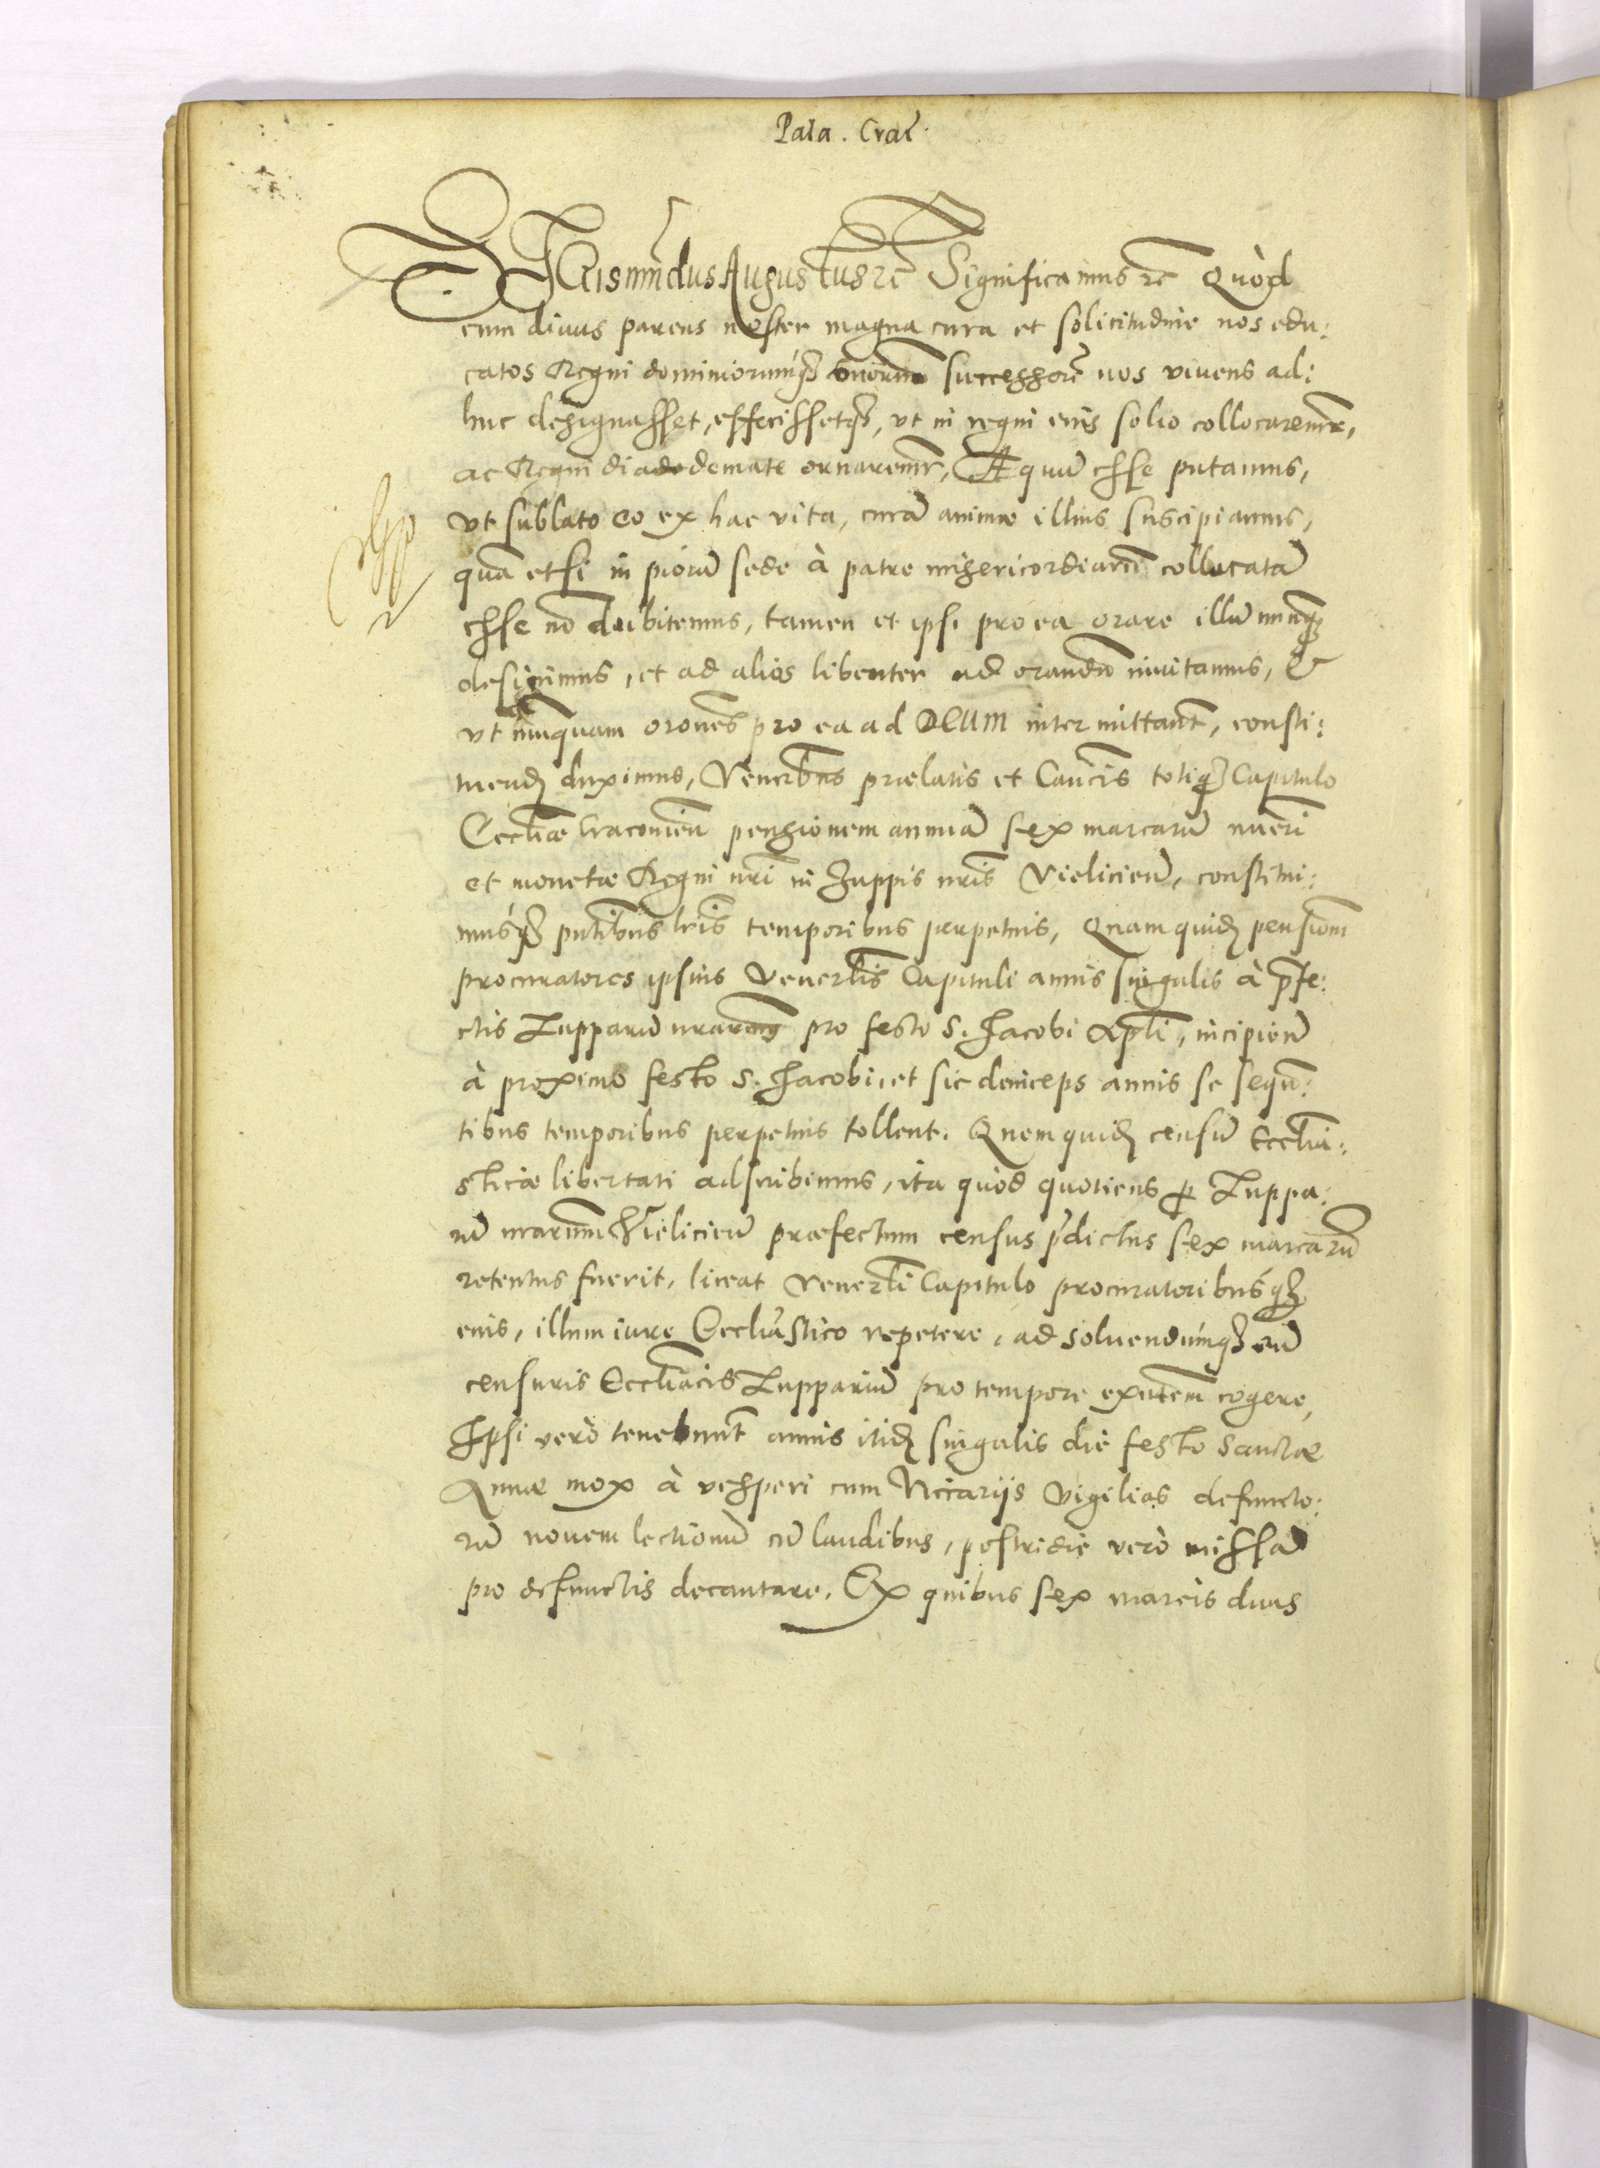 Pala. Crac̄.
SIGismūdus Augustus rc̄ Significamus rc̄ Quòd
cum diuus parens noster magna cura et solicitudine nos edu:
catos Regni dominiorumq́ꝫ suorum successorē nos viuens ad:
huc designasset, effecissetqꝫ, vt in regni eius solio collocaremur,
ac Regni diadedemate ornaremur, Æquū esse putamus,
vt sublato eo ex hac vita, curā animæ illius suscipiamus,
quā etsi in piorū sede à patre misericordiarū collocatā
esse nō dubitemus, tamen et ipsi pro ea orare illū nunq̄ꝫ
desinimus, et ad alios libenter ad orandū inuitamus, &
vt nunquam orōnes pro ea ad DEUM intermittant, consti:
tuendꝫ duximus, Venerbus prælatis et Canc̄is totiqꝫ Capitulo
Eccliæ Cracouien̄ pensionem annuā sex marcarū nūeri
et monetæ Regni nr̄i in Zuppis nr̄is Vieliciēn, constitui:
musq́ꝫ pn̄tibus lr̄is temporibus perpetuis, Quam quidꝫ pensionē
procuratores ipsius Venerlis Capituli annis singulis à p̄fe:
ctis Zupparū nrarum pro festo S. Jacobi Apl̄i, incipiēn
à proximo festo S. Jacobi, et sic deinceps annis se sequē:
tibus temporibus perpetuis tollent. Quem quidꝫ censū Ecclīa:
sticæ libertati adscribimus, ita quòd quotiens ꝑ Zuppa:
rū nrarum Vieliciēn præfectum census p̄dictus sex marcarū
retentus fuerit, liceat Venerli Capitulo procuratoribusq́ꝫ
eius, illum iure Eccliastico repetere, ad soluendumq́ꝫ eū
censuris Eccliacis Zuppariū pro tempore exn̄tem cogere,
Ipsi verò tenebunt̄ annis itidꝫ singulis die festo Sanctæ
Annæ mox à vesperi cum Vicarijs Vigilias defuncto:
rū nouem lectionū cū laudibus, postridie verò missā
pro defunctis decantare. Ex quibus sex marcis duas